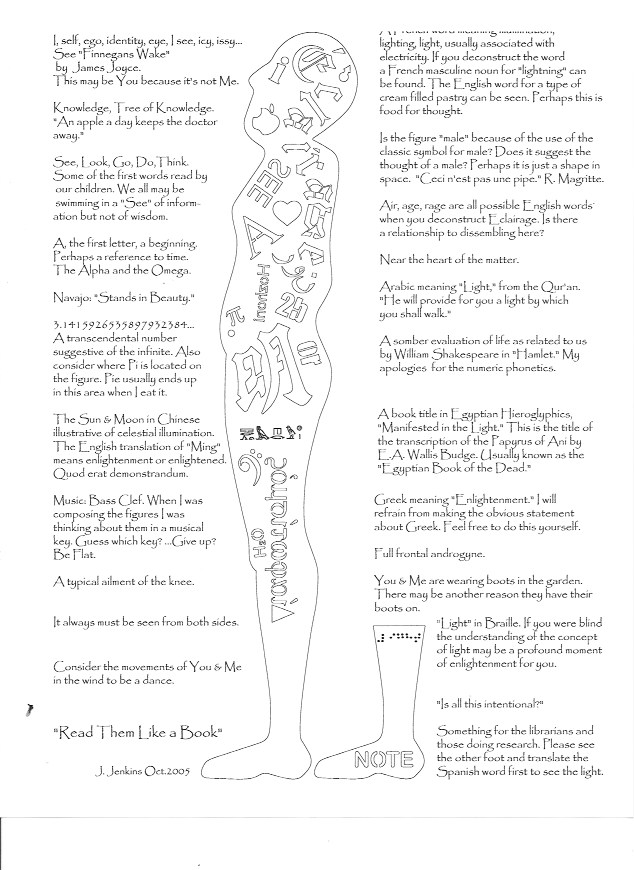 I, self, ego, identity, eye, I see, icy, issy...
See "Finnegans Wake"
by James Joyce.
This may be You because it's not Me.
Knowledge, Tree of Knowledge.
"An apple a day keeps the doctor
away."
See, Look, Go, Do, Think.
Some of the first words read by
our children. We all may be
swimming in a "See" of inform-
ation but not of wisdom.
A, the first letter, a beginning.
Perhaps a reference to time.
The Alpha and the Omega.
Navajo: "Stands in Beauty."
3.1415926535897932384...
A transcendental number
suggestive of the infinite. Also
consider where Pi is located on
the figure. Pie usually ends up
in this area when I eat it.
The Sun & Moon in Chinese
illustrative of celestial illumination.
The English translation of "Ming"
means enlightenment or enlightened.
Quod erat demonstrandum.
Music: Bass Clef. When I was
composing the figures I was
thinking about them in a musical
key. Guess which key? ...Give up?
Be Flat.
A typical ailment of the knee.
It always must be seen from both sides.
Consider the movements of You & Me
in the wind to be a dance.
"Read Them Like a Book"
J. Jenkins Oct.2005
i
SEE
A
π
2b
or
明
H2O
NOTE
A French word meaning illumination,
lighting, light, usually associated with
electricity. If you deconstruct the word
a French masculine noun for "lightning" can
be found. The English word for a type of
cream filled pastry can be seen. Perhaps this is
food for thought.
Is the figure "male" because of the use of the
classic symbol for male? Does it suggest the
thought of a male? Perhaps it is just a shape in
space. "Ceci n'est pas une pipe." R. Magritte.
Air, age, rage are all possible English words
when you deconstruct Eclairage. Is there
a relationship to dissembling here?
Near the heart of the matter.
Arabic meaning "Light," from the Qur'an.
"He will provide for you a light by which
you shall walk."
A somber evaluation of life as related to us
by William Shakespeare in "Hamlet." My
apologies for the numeric phonetics.
A book title in Egyptian Hieroglyphics,
"Manifested in the Light." This is the title of
the transcription of the Papyrus of Ani by
E.A. Wallis Budge. Usually known as the
"Egyptian Book of the Dead."
Greek meaning "Enlightenment." I will
refrain from making the obvious statement
about Greek. Feel free to do this yourself.
Full frontal androgyne.
You & Me are wearing boots in the garden.
There may be another reason they have their
boots on.
"Light" in Braille. If you were blind
the understanding of the concept
of light may be a profound moment
of enlightenment for you.
"Is all this intentional?"
Something for the librarians and
those doing research. Please see
the other foot and translate the
Spanish word first to see the light.